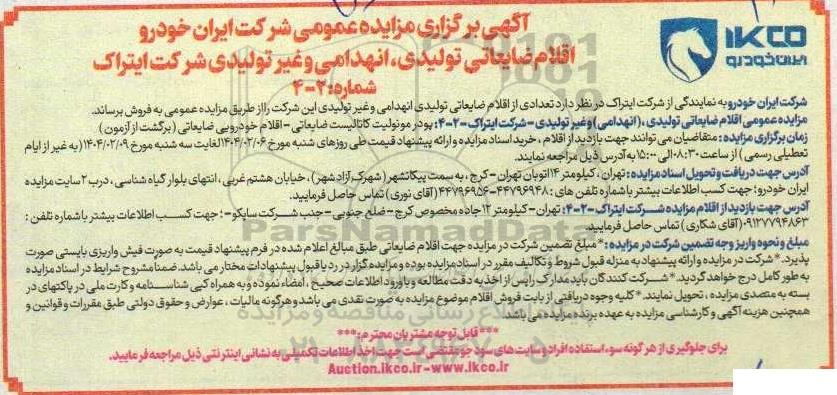 IKCO
ایران خودرو
آگهی برگزاری مزایده عمومی شرکت ایران خودرو
اقلام ضایعاتی تولیدی، انهدامی و غیر تولیدی شرکت ایتراک
شماره: ۲-۴
شرکت ایران خودرو به نمایندگی از شرکت ایتراک در نظر دارد تعدادی از اقلام ضایعاتی تولیدی انهدامی و غیر تولیدی این شرکت را از طریق مزایده عمومی به فروش برساند.
مزایده عمومی اقلام ضایعاتی تولیدی، (انهدامی) و غیر تولیدی - شرکت ایتراک - ۲-۴: پودر مونولیت کاتالیست ضایعاتی - اقلام خودرویی ضایعاتی (برگشت از آزمون)
زمان برگزاری مزایده: متقاضیان می توانند جهت بازدید از اقلام، خرید اسناد مزایده و ارائه پیشنهاد قیمت طی روزهای شنبه مورخ ۱۴۰۴/۰۲/۰۶ لغایت سه شنبه مورخ ۱۴۰۴/۰۲/۰۹ (به غیر از ایام
تعطیلی رسمی) از ساعت ۰۸:۳۰ الی ۱۵:۰۰ به آدرس ذیل مراجعه نمایند.
آدرس جهت دریافت و تحویل اسناد مزایده: تهران، کیلومتر ۱۴ اتوبان تهران - کرج، به سمت پیکانشهر (شهرک آزادشهر)، خیابان هشتم غربی، انتهای بلوار گیاه شناسی، درب ۲ سایت مزایده
ایران خودرو؛ جهت کسب اطلاعات بیشتر با شماره تلفن های: ۴۴۷۹۶۹۴۸-۴۴۷۹۶۹۵۶ (آقای نوری) تماس حاصل فرمایید.
آدرس جهت بازدید از اقلام مزایده شرکت ایتراک - ۲-۴: تهران - کیلومتر ۱۲ جاده مخصوص کرج - ضلع جنوبی - جنب شرکت ساپکو -؛ جهت کسب اطلاعات بیشتر با شماره تلفن:
۰۹۱۲۷۷۹۴۸۶۳ (آقای شکاری) تماس حاصل فرمایید.
مبلغ و نحوه واریز وجه تضمین شرکت در مزایده: * مبلغ تضمین شرکت در مزایده جهت اقلام ضایعاتی طبق مبالغ اعلام شده در فرم پیشنهاد قیمت به صورت فیش واریزی بایستی صورت
پذیرد. * شرکت در مزایده و ارائه پیشنهاد به منزله قبول شروط و تکالیف مقرر در اسناد مزایده بوده و مزایده گزار در رد یا قبول پیشنهادات مختار می باشد. ضمنا مشروح شرایط در اسناد مزایده
به طور کامل درج خواهد گردید. * شرکت کنندگان باید مدارک را پس از اخذ به دقت مطالعه و با ورود اطلاعات صحیح، امضاء نموده و به همراه کپی شناسنامه و کارت ملی در پاکتهای در
بسته به متصدی مزایده، تحویل نمایند. * کلیه وجوه دریافتی از بابت فروش اقلام موضوع مزایده به صورت نقدی می باشد و هرگونه مالیات، عوارض و حقوق دولتی طبق مقررات و قوانین و
همچنین هزینه آگهی و کارشناسی مزایده به عهده برنده مزایده می باشد
*** قابل توجه مشتریان محترم: ***
برای جلوگیری از هر گونه سوء استفاده افراد و سایت های سود جو مقتضی است جهت اخذ اطلاعات تکمیلی به نشانی اینترنتی ذیل مراجعه فرمایید.
Auction.ikco.ir - www.ikco.ir